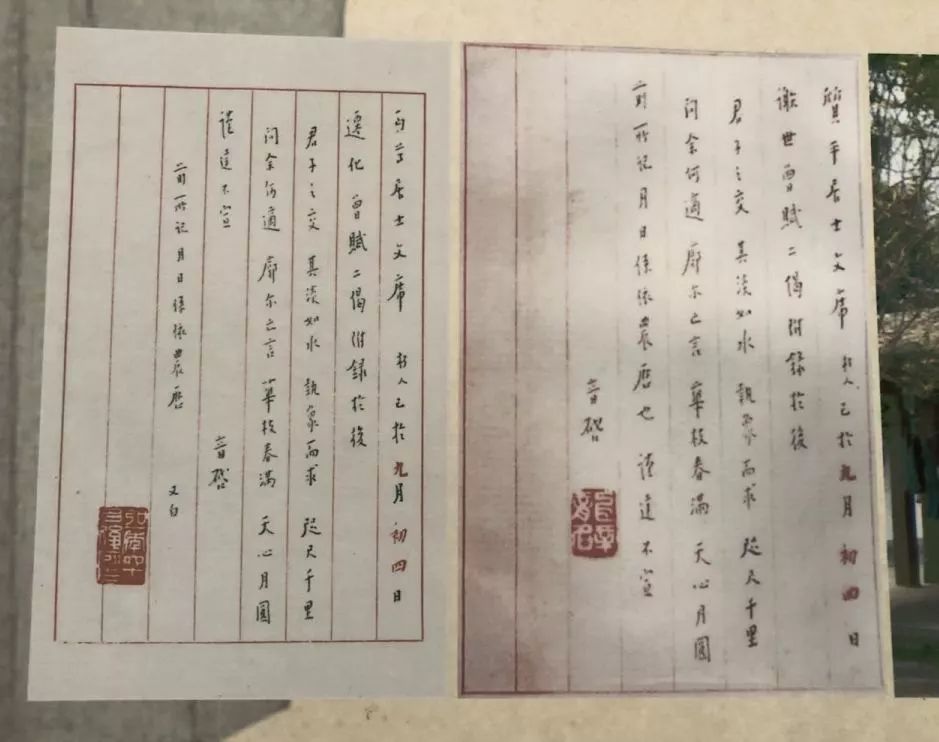 質平居士文席 朽人已於九月初四日
謝世曾賦二偈附錄於後
君子之交 其淡如水 執象而求 咫尺千里
問余何適 廓尔亡言 華枝春滿 天心月圓
前所記月日係依農曆也 謹達不宣
音啓
丏尊居士文席 朽人已於九月初四日
遷化曾賦二偈附錄於後
君子之交 其淡如水 執象而求 咫尺千里
問余何適 廓尔亡言 華枝春滿 天心月圓
謹達不宣 音啓
前所記月日係依農曆 又白